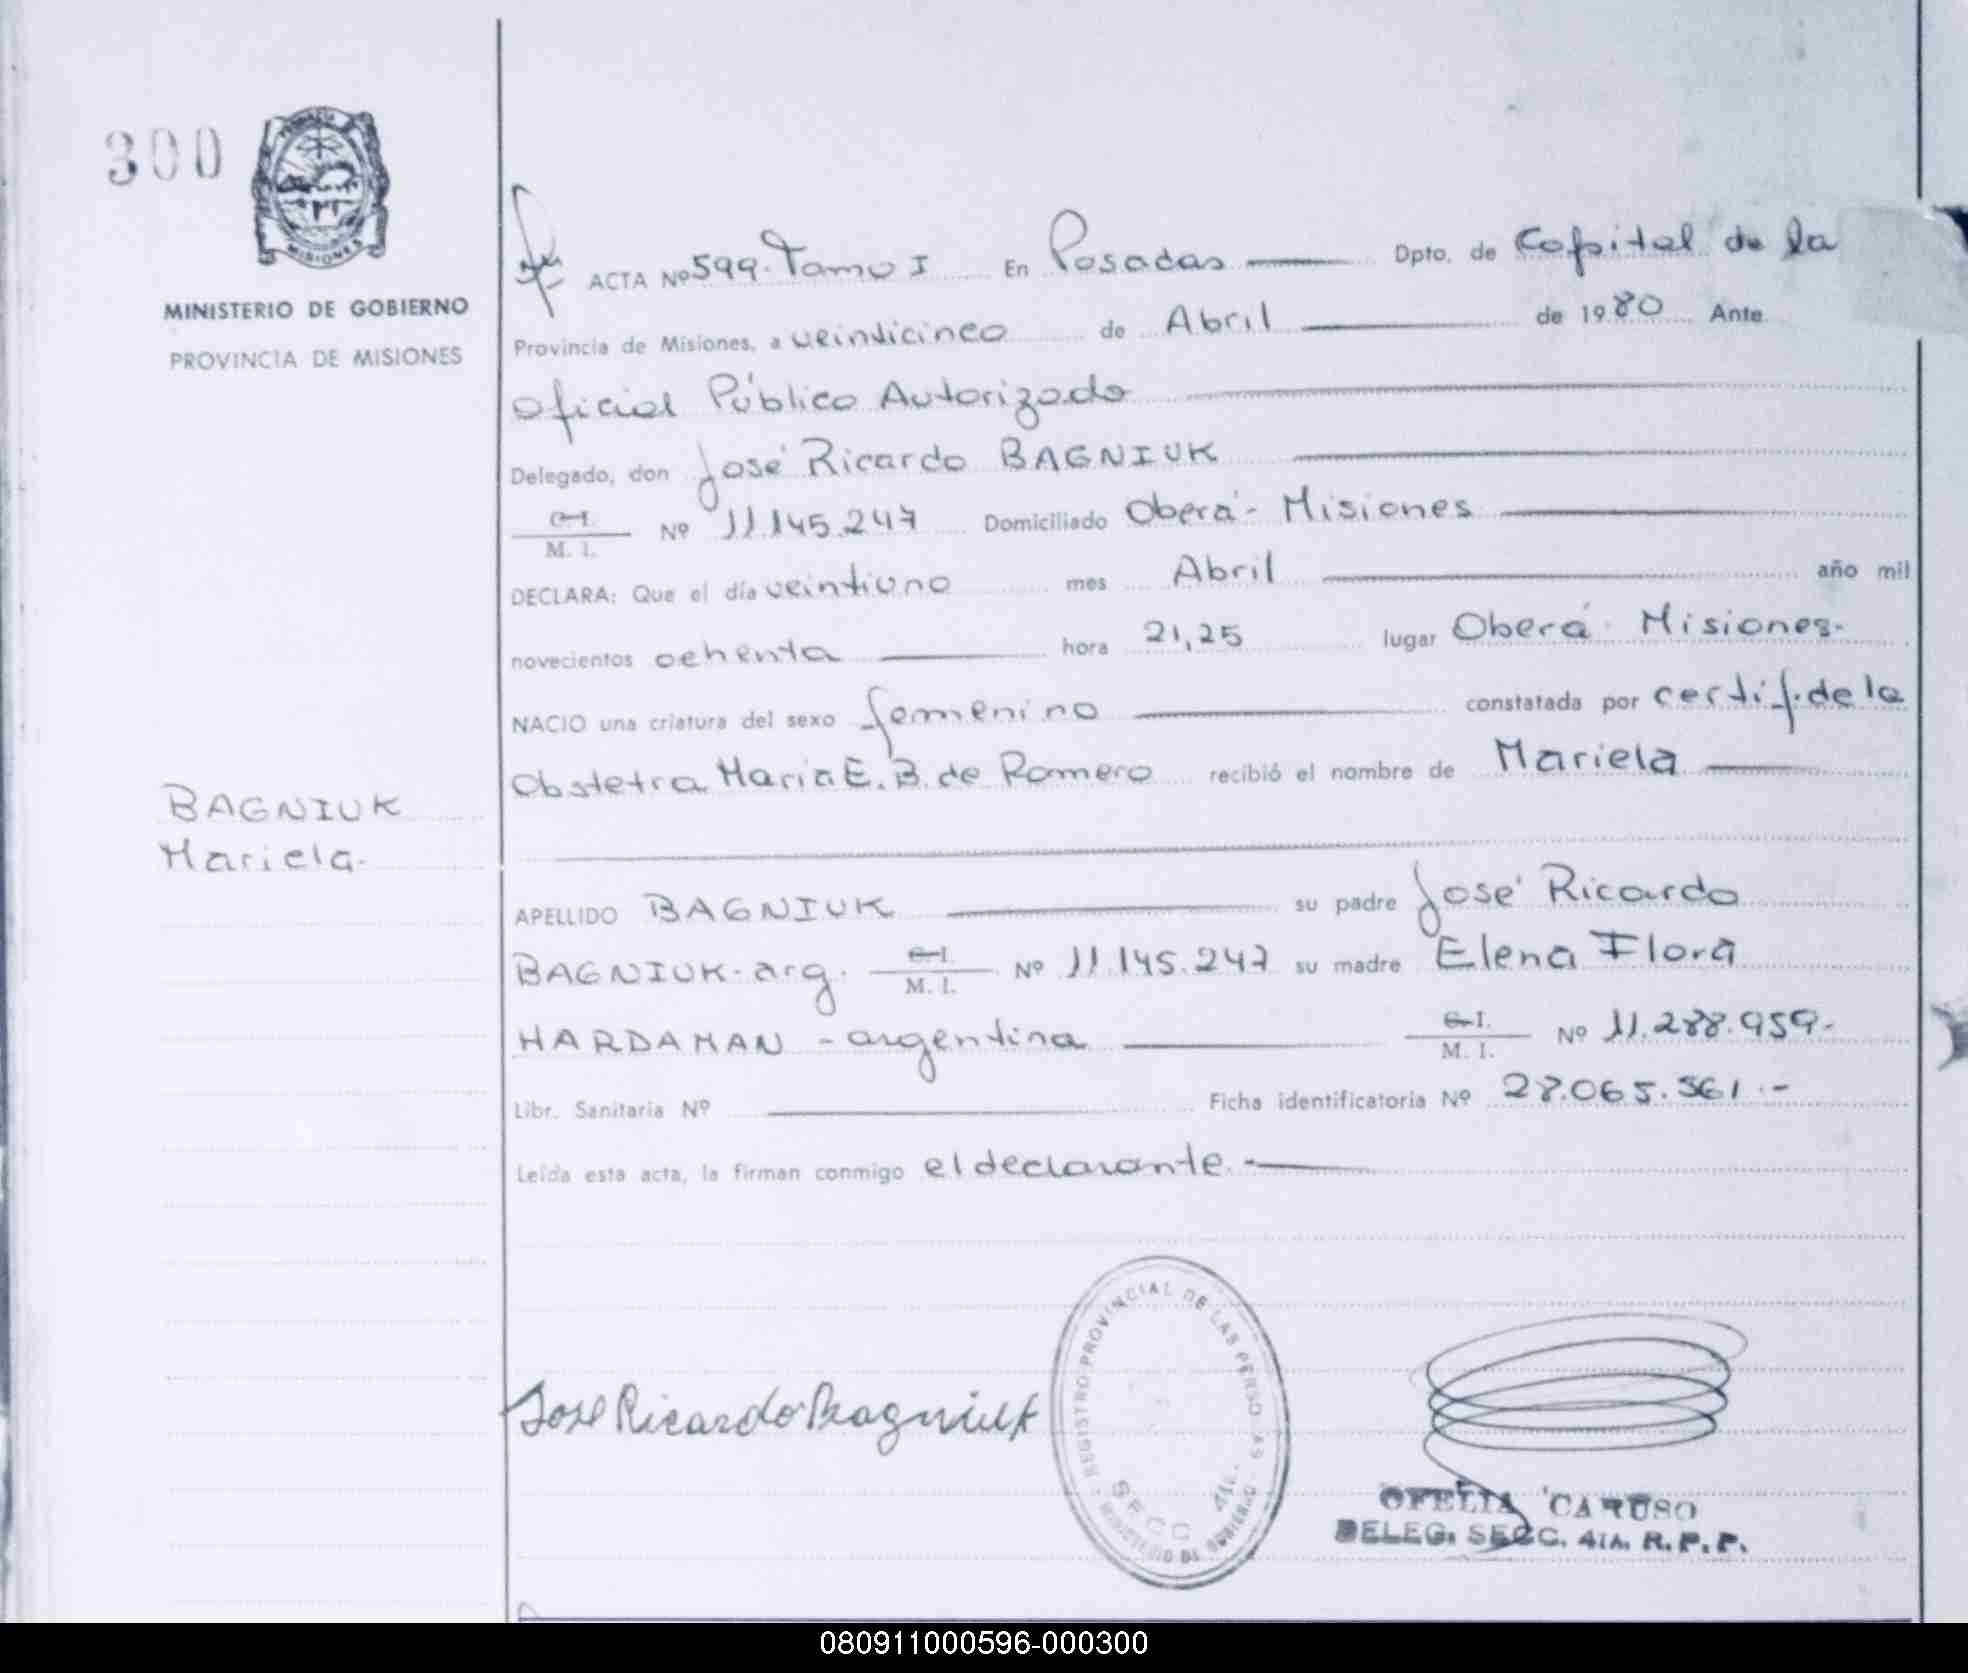 300
MISIONES
MINISTERIO DE GOBIERNO
PROVINCIA DE MISIONES
ACTA Nº 599. Tomo I En Posadas Dpto. de Capital de la
Provincia de Misiones, a veinticinco de Abril de 1980 Ante
Oficial Público Autorizado
Delegado, don José Ricardo BAGNIUK
C.I.
M. I. Nº 11.145.247 Domiciliado Oberá - Misiones
DECLARA: Que el día veintiuno mes Abril año mil
novecientos ochenta hora 21,25 lugar Oberá - Misiones.
NACIO una criatura del sexo femenino constatada por certif. de la
Obstetra María E. B. de Romero recibió el nombre de Mariela
BAGNIUK
Mariela.
APELLIDO BAGNIUK su padre José Ricardo
BAGNIUK - arg. C.I.
M. I. Nº 11.145.247 su madre Elena Flora
HARDAMAN - argentina C.I.
M. I. Nº 11.288.959.-
Libr. Sanitaria Nº Ficha identificatoria Nº 28.065.561.-
Leída esta acta, la firman conmigo el declarante.-
José Ricardo Bagniuk
REGISTRO PROVINCIAL DE LAS PERSONAS
SECC 4ta.
MINISTERIO DE GOBIERNO
OFELIA CARUSO
DELEG. SECC. 4TA. R.P.P.
080911000596-000300